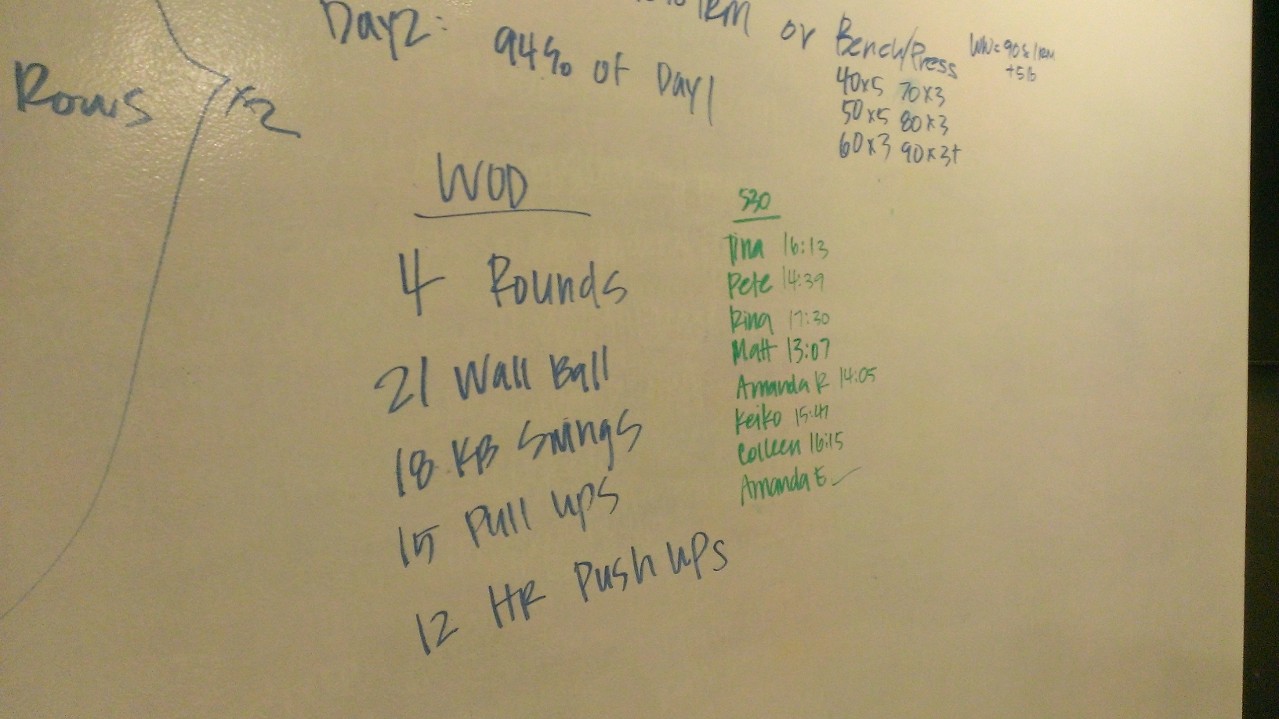 1RM or Bench/Press
Day2: 94% of Day1
WM= 90% 1RM
+5lb
40x5 70x3
50x5 80x3
60x3 90x3+
Rows x2
WOD
4 Rounds
21 Wall Ball
18 KB Swings
15 Pull ups
12 HR Push ups
530
Tina 16:13
Pete 14:39
Rina 17:30
Matt 13:07
Amanda R 14:05
Keiko 15:47
Colleen 16:15
Amanda E ✓